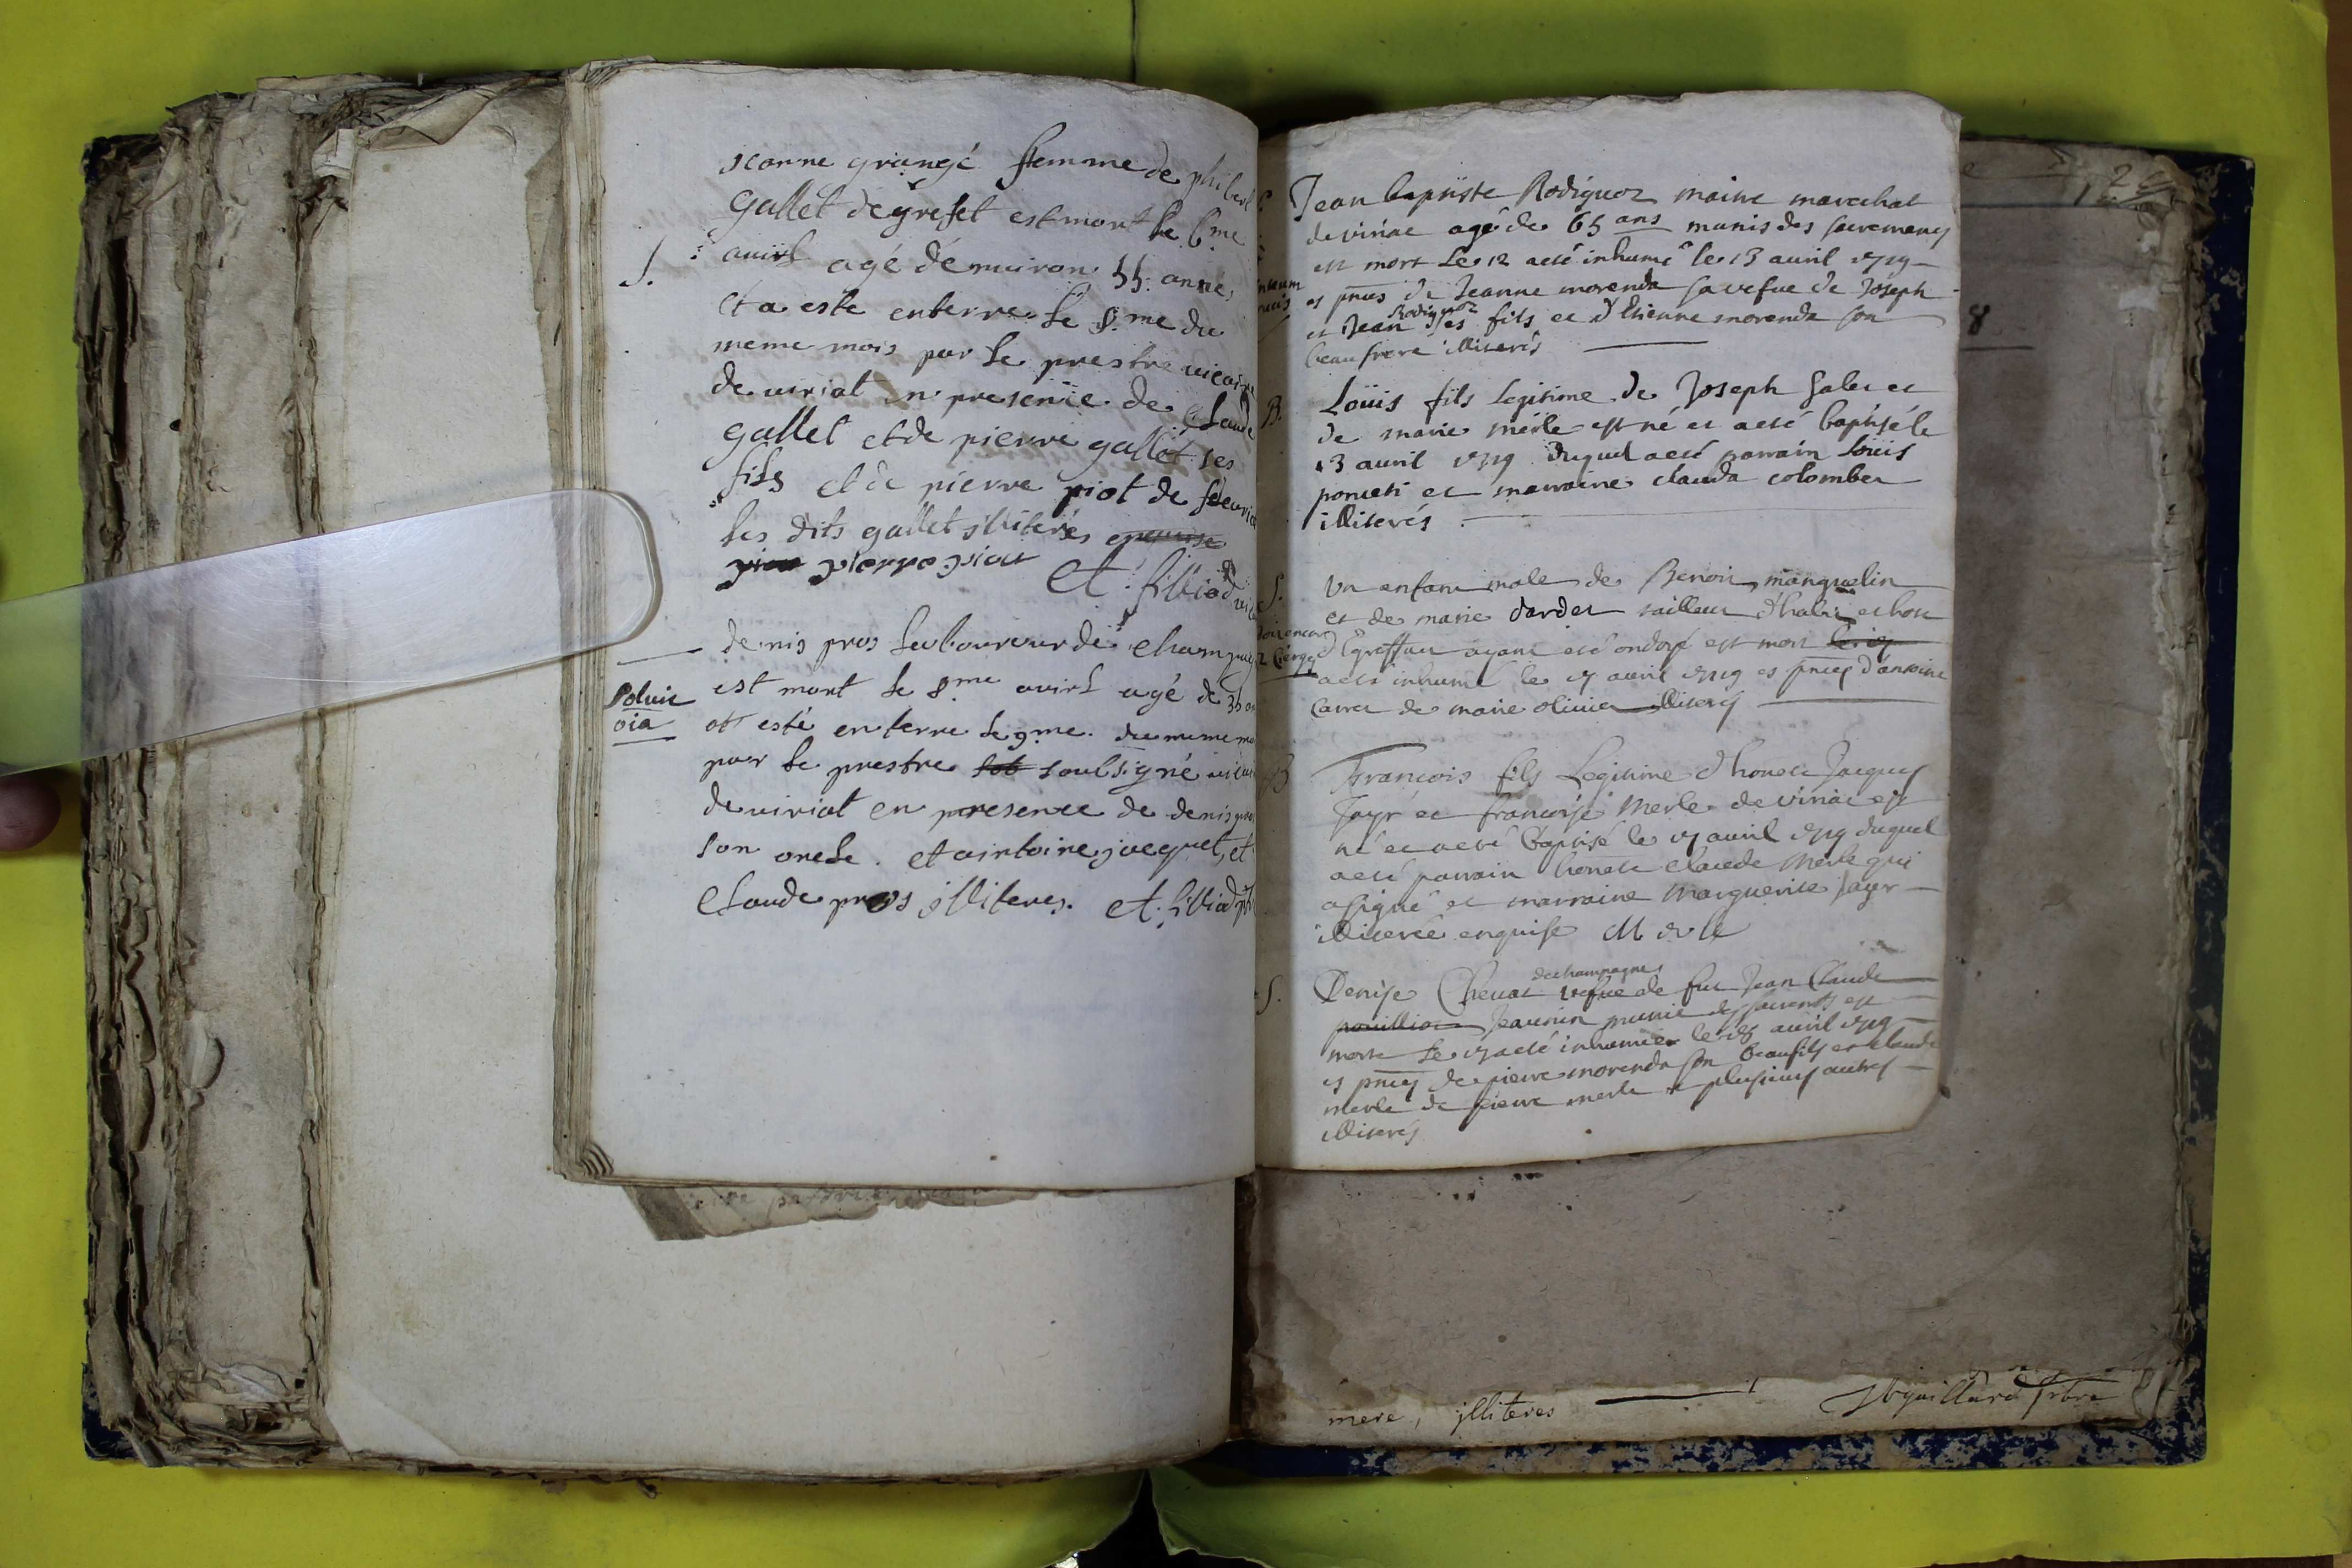 jeanne grangé femme de philbert
Gallet degrefet est mort le 6me
avirl agé demviron 55 année,
S.
et a este enterre le 8.me du
meme mois par le prestre vicaire
de viriat en presence de Claude
gallet et de pierre gallet ses
fils et de pierre piot de
les dits gallet illiterés
pierre piou
et. filliod
denis pros laboureur de Champag
est mort le 8me avirl agé de 35 an
Solvit
oia
ett esté enterre le 9me. du meme mo
par le prestre sob soubsigné vicai
de viriat en presence de denis pros
son oncle. et aintoine jacquet, et
Claude pros illiteres. et. filliod
Jean baptiste Rodiguoz maitre marechal
de viriac agé de 65 ans munis des sacremens
est mort le 12 a eté inhumé le 13 avril 1719
es pnces de Jeanne morenda sa vefue de Joseph
Rodiguoz
et Jean ses fils et d'Etienne morenda son
beaufrere illiterés
B.
Loüis fils legitime de Joseph Galet et
de marie merle est né et a eté baptisé le
13 avril 1719 duquel a eté parrain Loüis
poncet et marraine clauda colomber
illiterés
S.
Un enfant male de Benoit manguelin
et de marie dardet tailleur d'habis et host
ayant eté ondoyé est mort le 17
a eté inhumé le 17 avril 1719 es pnces d'antoine
carret de marie olivier illiterés
B
Francois fils Legitime d'honete Jacques
Jayr et francoise Merle de viriac est
né et a eté baptisé le 17 avril 1719 duquel
a eté parrain honete Claude Merle qui
a signé et marraine Marguerite Jayr
illiterée enquise Merle
S.
de champagne
Denise Chevat vefue de fut Jean Claude
pouillion Jeannin munie des sacrements est
morte le 17 a eté inhumée le 18 avril 1719
es pnces de pierre morenda son beaufils et claude
merle de pierre merle et plusieurs autres
illiterés
mere, illiteres